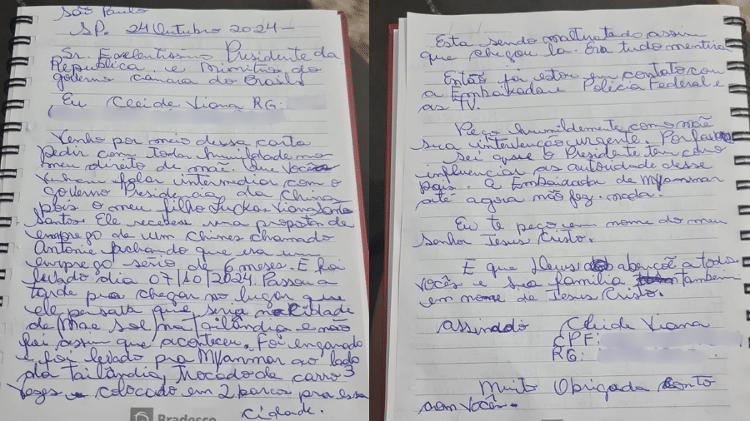 São Paulo
SP. 24 Outubro 2024 -
Sr. Excelentissimo Presidente da
República e Primitros do
governo camara do Brasil
Eu Cleide Viana RG:
Venho por meio dessa carta
pedir com toda humildade no
meu direto de mãe. que vocês
venham falar intermediar com o
governo Presidente da China
pois o meu filho Luckas Viana
Santos. Ele recebeu uma proposta de
emprego de um Chines chamado
Antonie Achando que era um
emprego sério de 6 meses. E foi
levado dia 07/10/2024. Passou a
tarde pra chegar no lugar que
ele pensava que seria na cidade
de Mae Sot na Tailândia e não
foi assim que aconteceu. Foi enganado
e foi levado pra Myanmar ao lado
da Tailândia, Trocado de carro 3
vezes e colocado em 2 barcos pra essa
cidade.
Bradesco
Esta sendo maltratado assim
que chegou la. Era tudo mentira
Então fa estou em contato com
a Embaixada e Policia Federal e
as TV.
Peço humildemente como mãe
sua intervenção urgente. Porfavor
sei que o Presidente tem como
influenciar as autoridade desse
pais. A Embaixada de Myanmar
até agora não fez nada.
Eu te peço em nome do meu
senhor Jesus Cristo.
E que Deus abençõe a todos
vocês e sua familia também
em nome de Jesus Cristo.
assinado Cleide Viana
CPF:
RG:
Muito Obrigada Conto
com vocês.